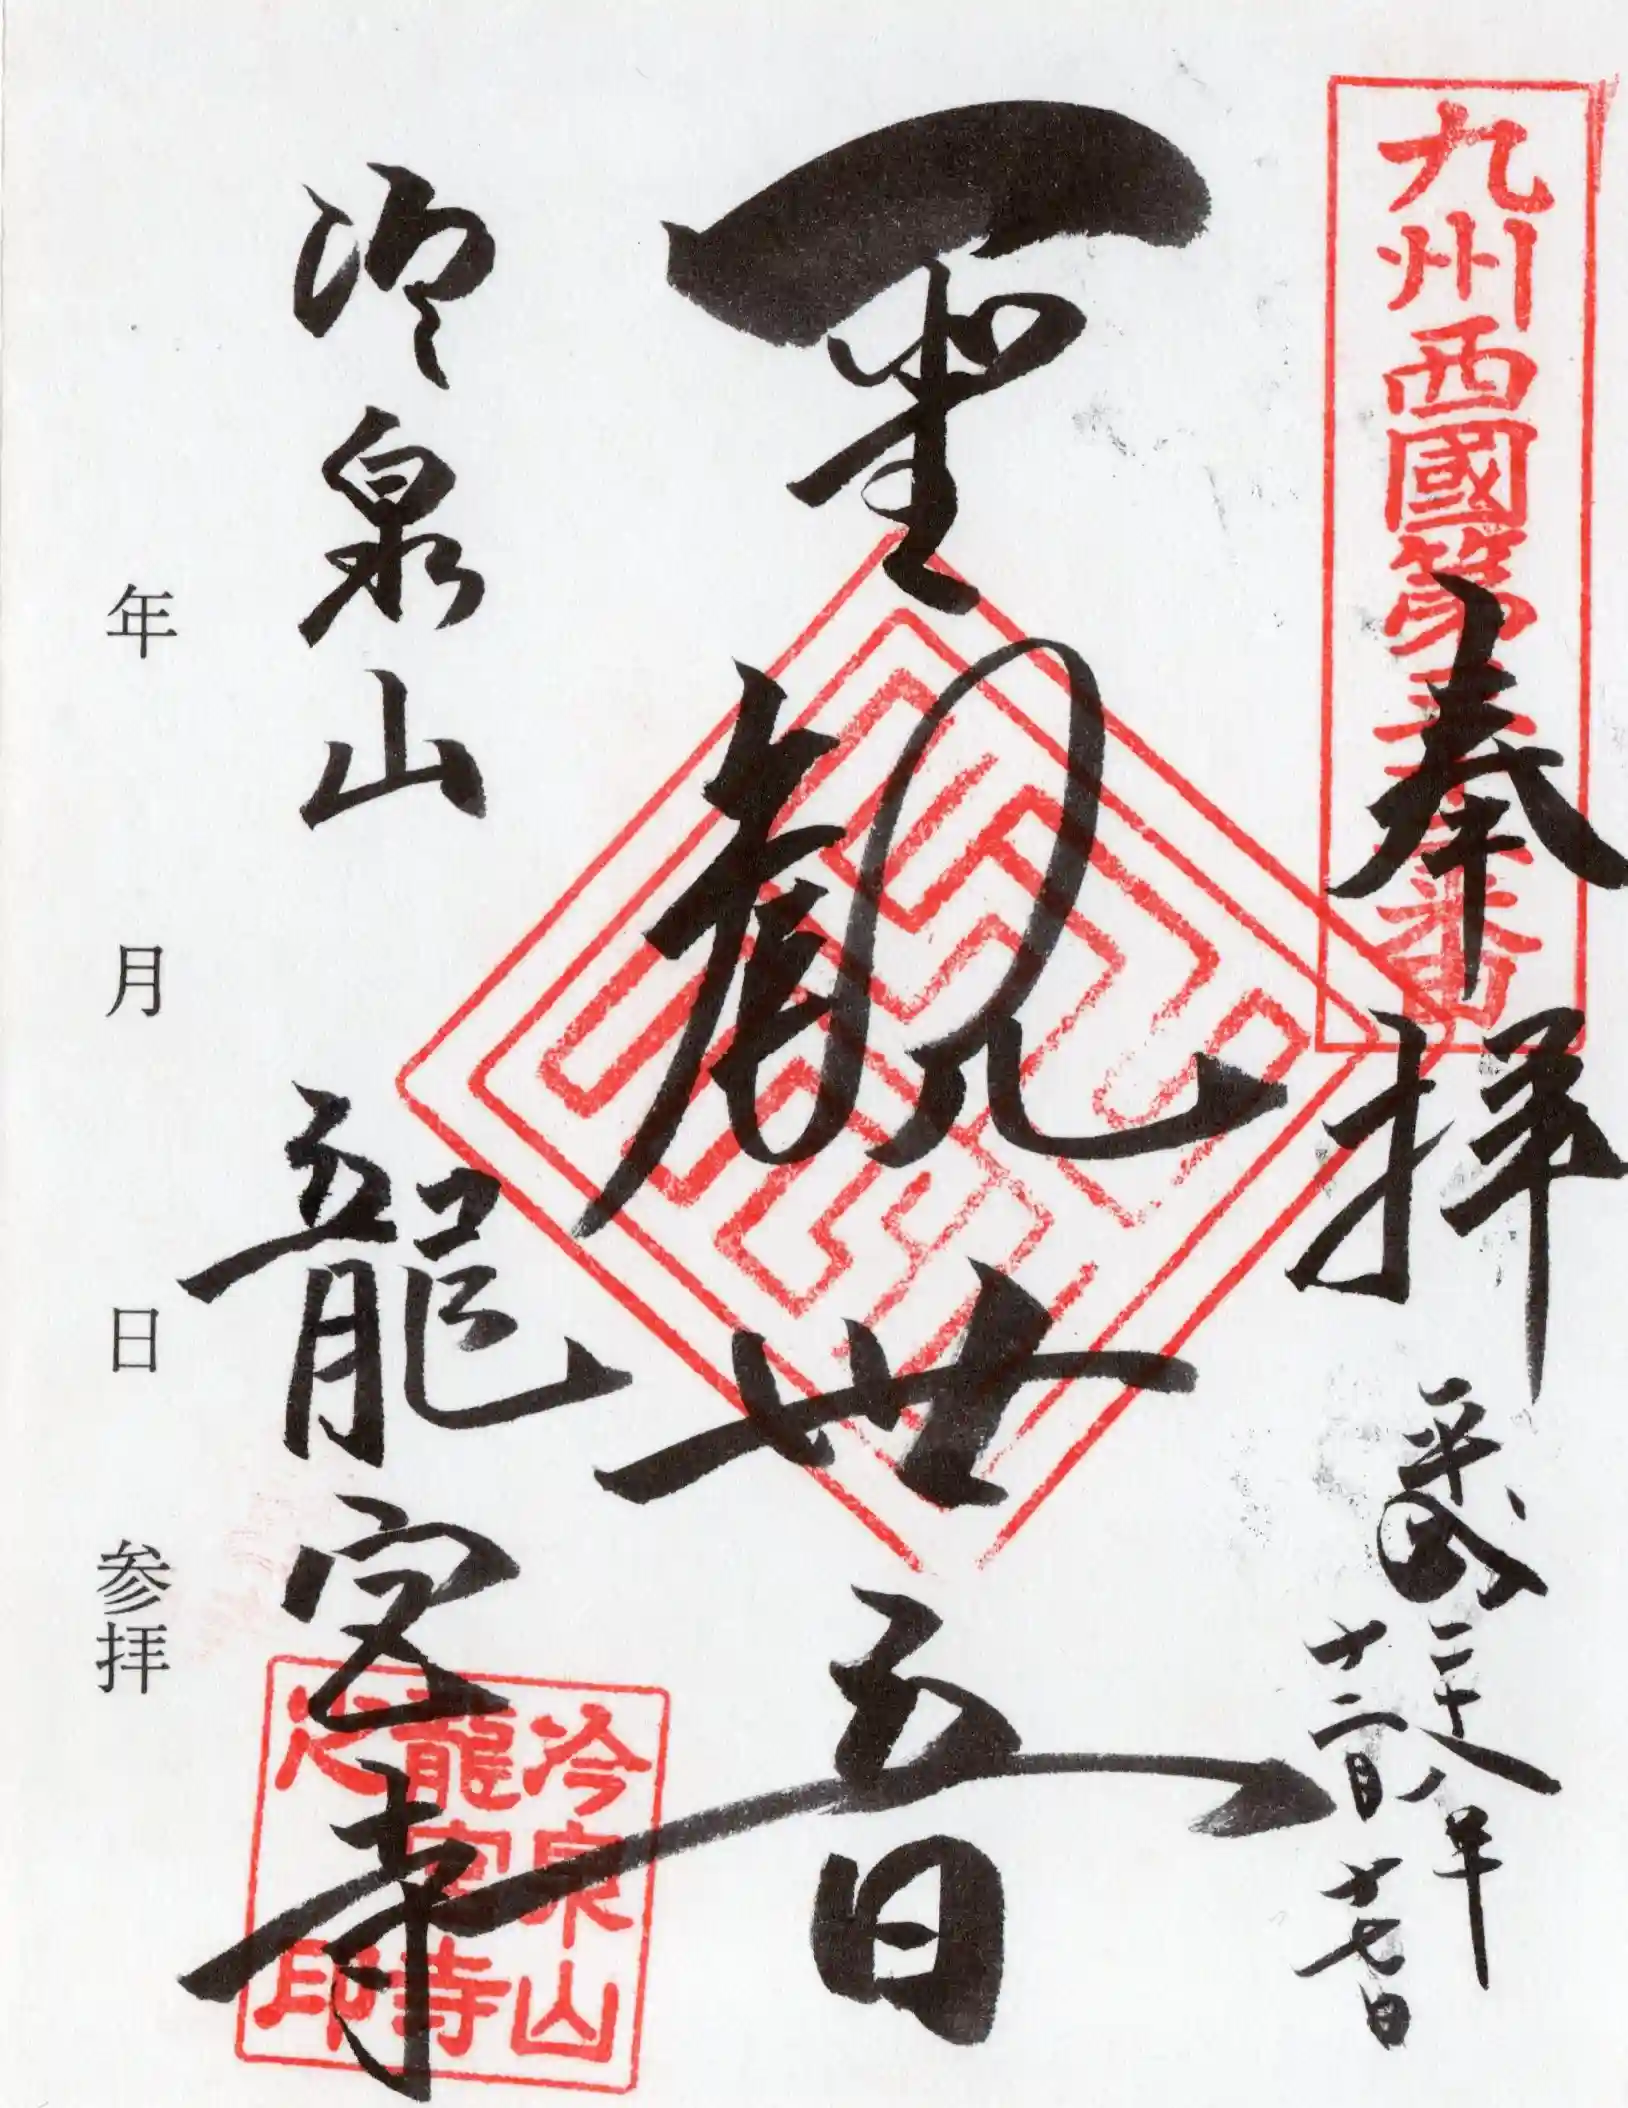 九州西國第三十三番
奉拝
平成二十八年
十二月十七日
聖観世音
冷泉山
龍宮寺
冷泉山
龍宮寺
之印
年 月 日 参拝